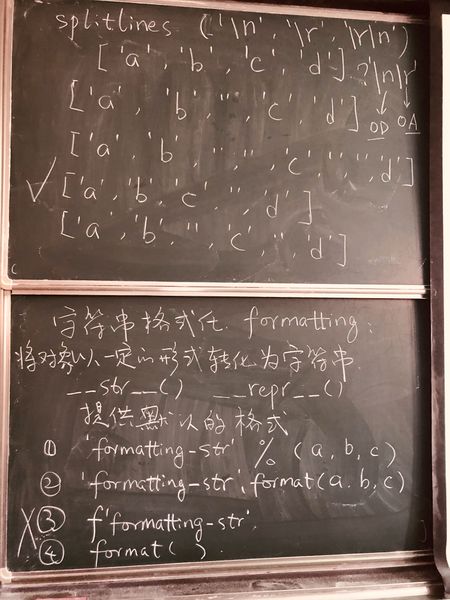 splitlines ('\n', '\r', '\r\n')
['a', 'b', 'c', 'd'] ? '\n\r'
['a', 'b', '', 'c', '', 'd'] 0D 0A
['a', 'b', '', '', 'c', '', '', 'd']
✓ ['a', 'b', 'c', '', 'd']
['a', 'b', '', 'c', '', 'd']
字符串格式化. formatting:
将对象以一定的形式转化为字符串.
__str__() __repr__()
提供默认的格式
① 'formatting-str' % (a, b, c)
② 'formatting-str'.format(a.b,c)
X ③ f'formatting-str'.
④ format( ).